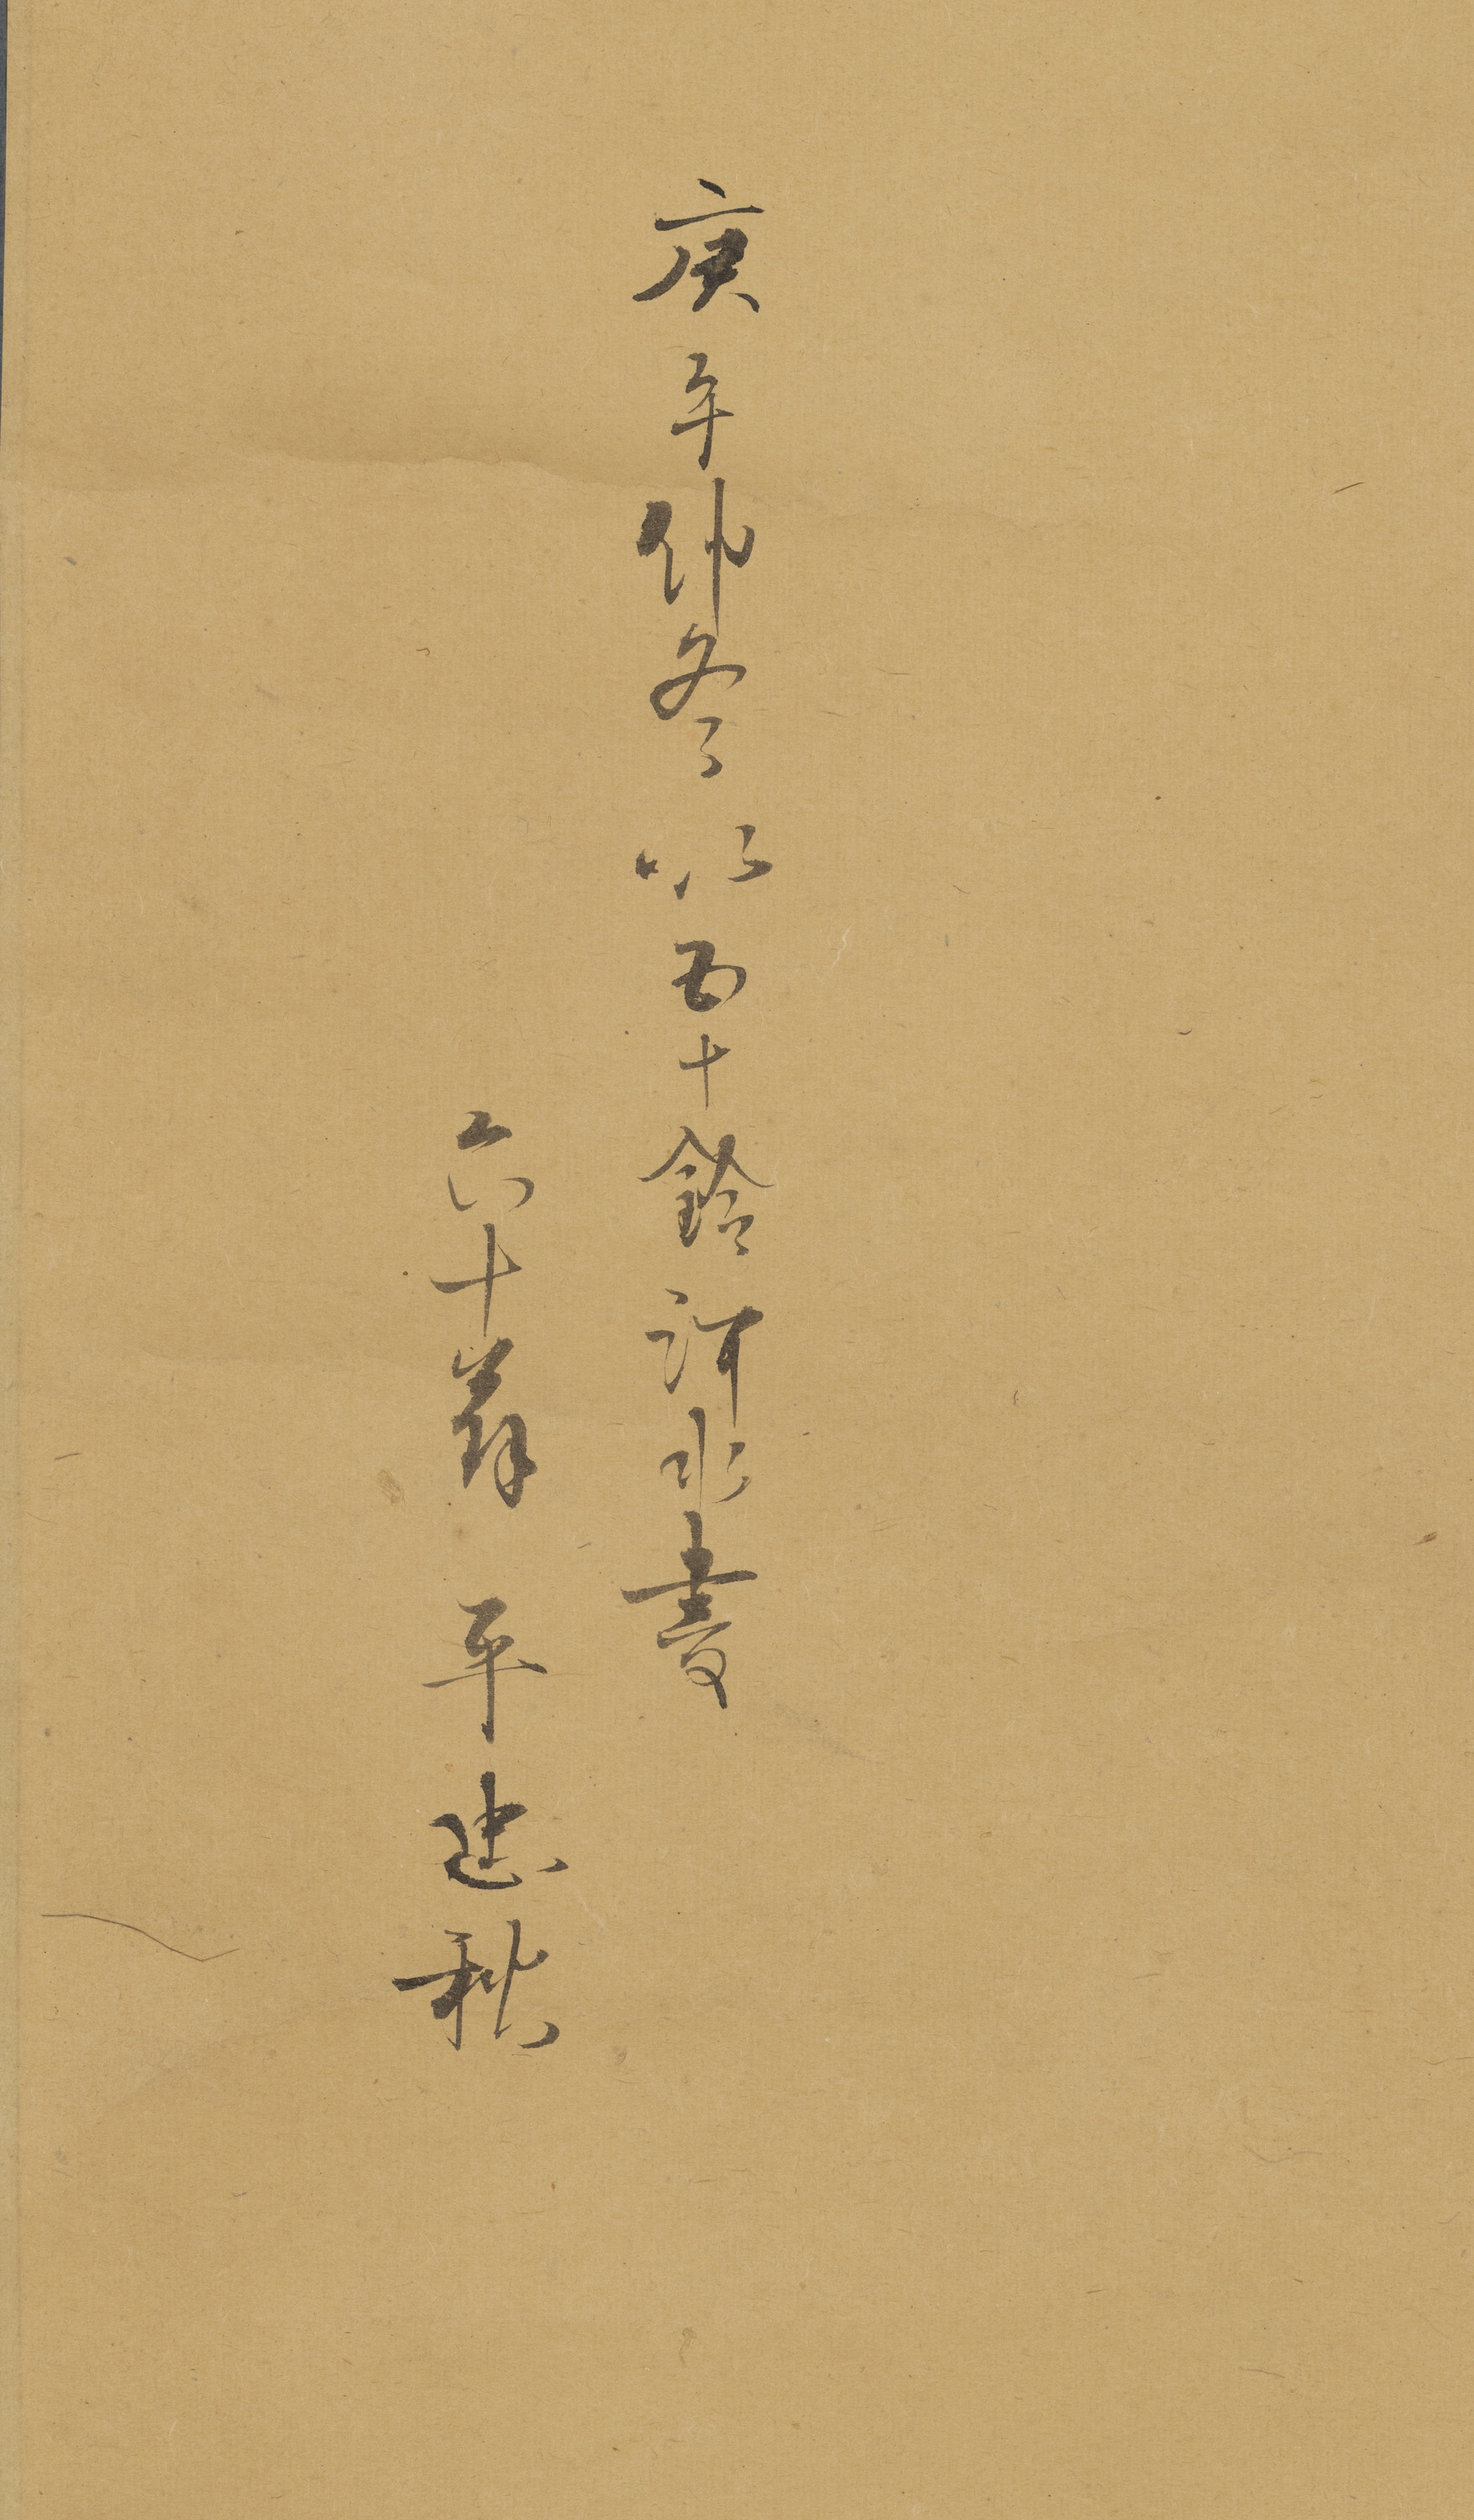 庚午仲冬以五十鈴河水書
六十翁 平忠秋